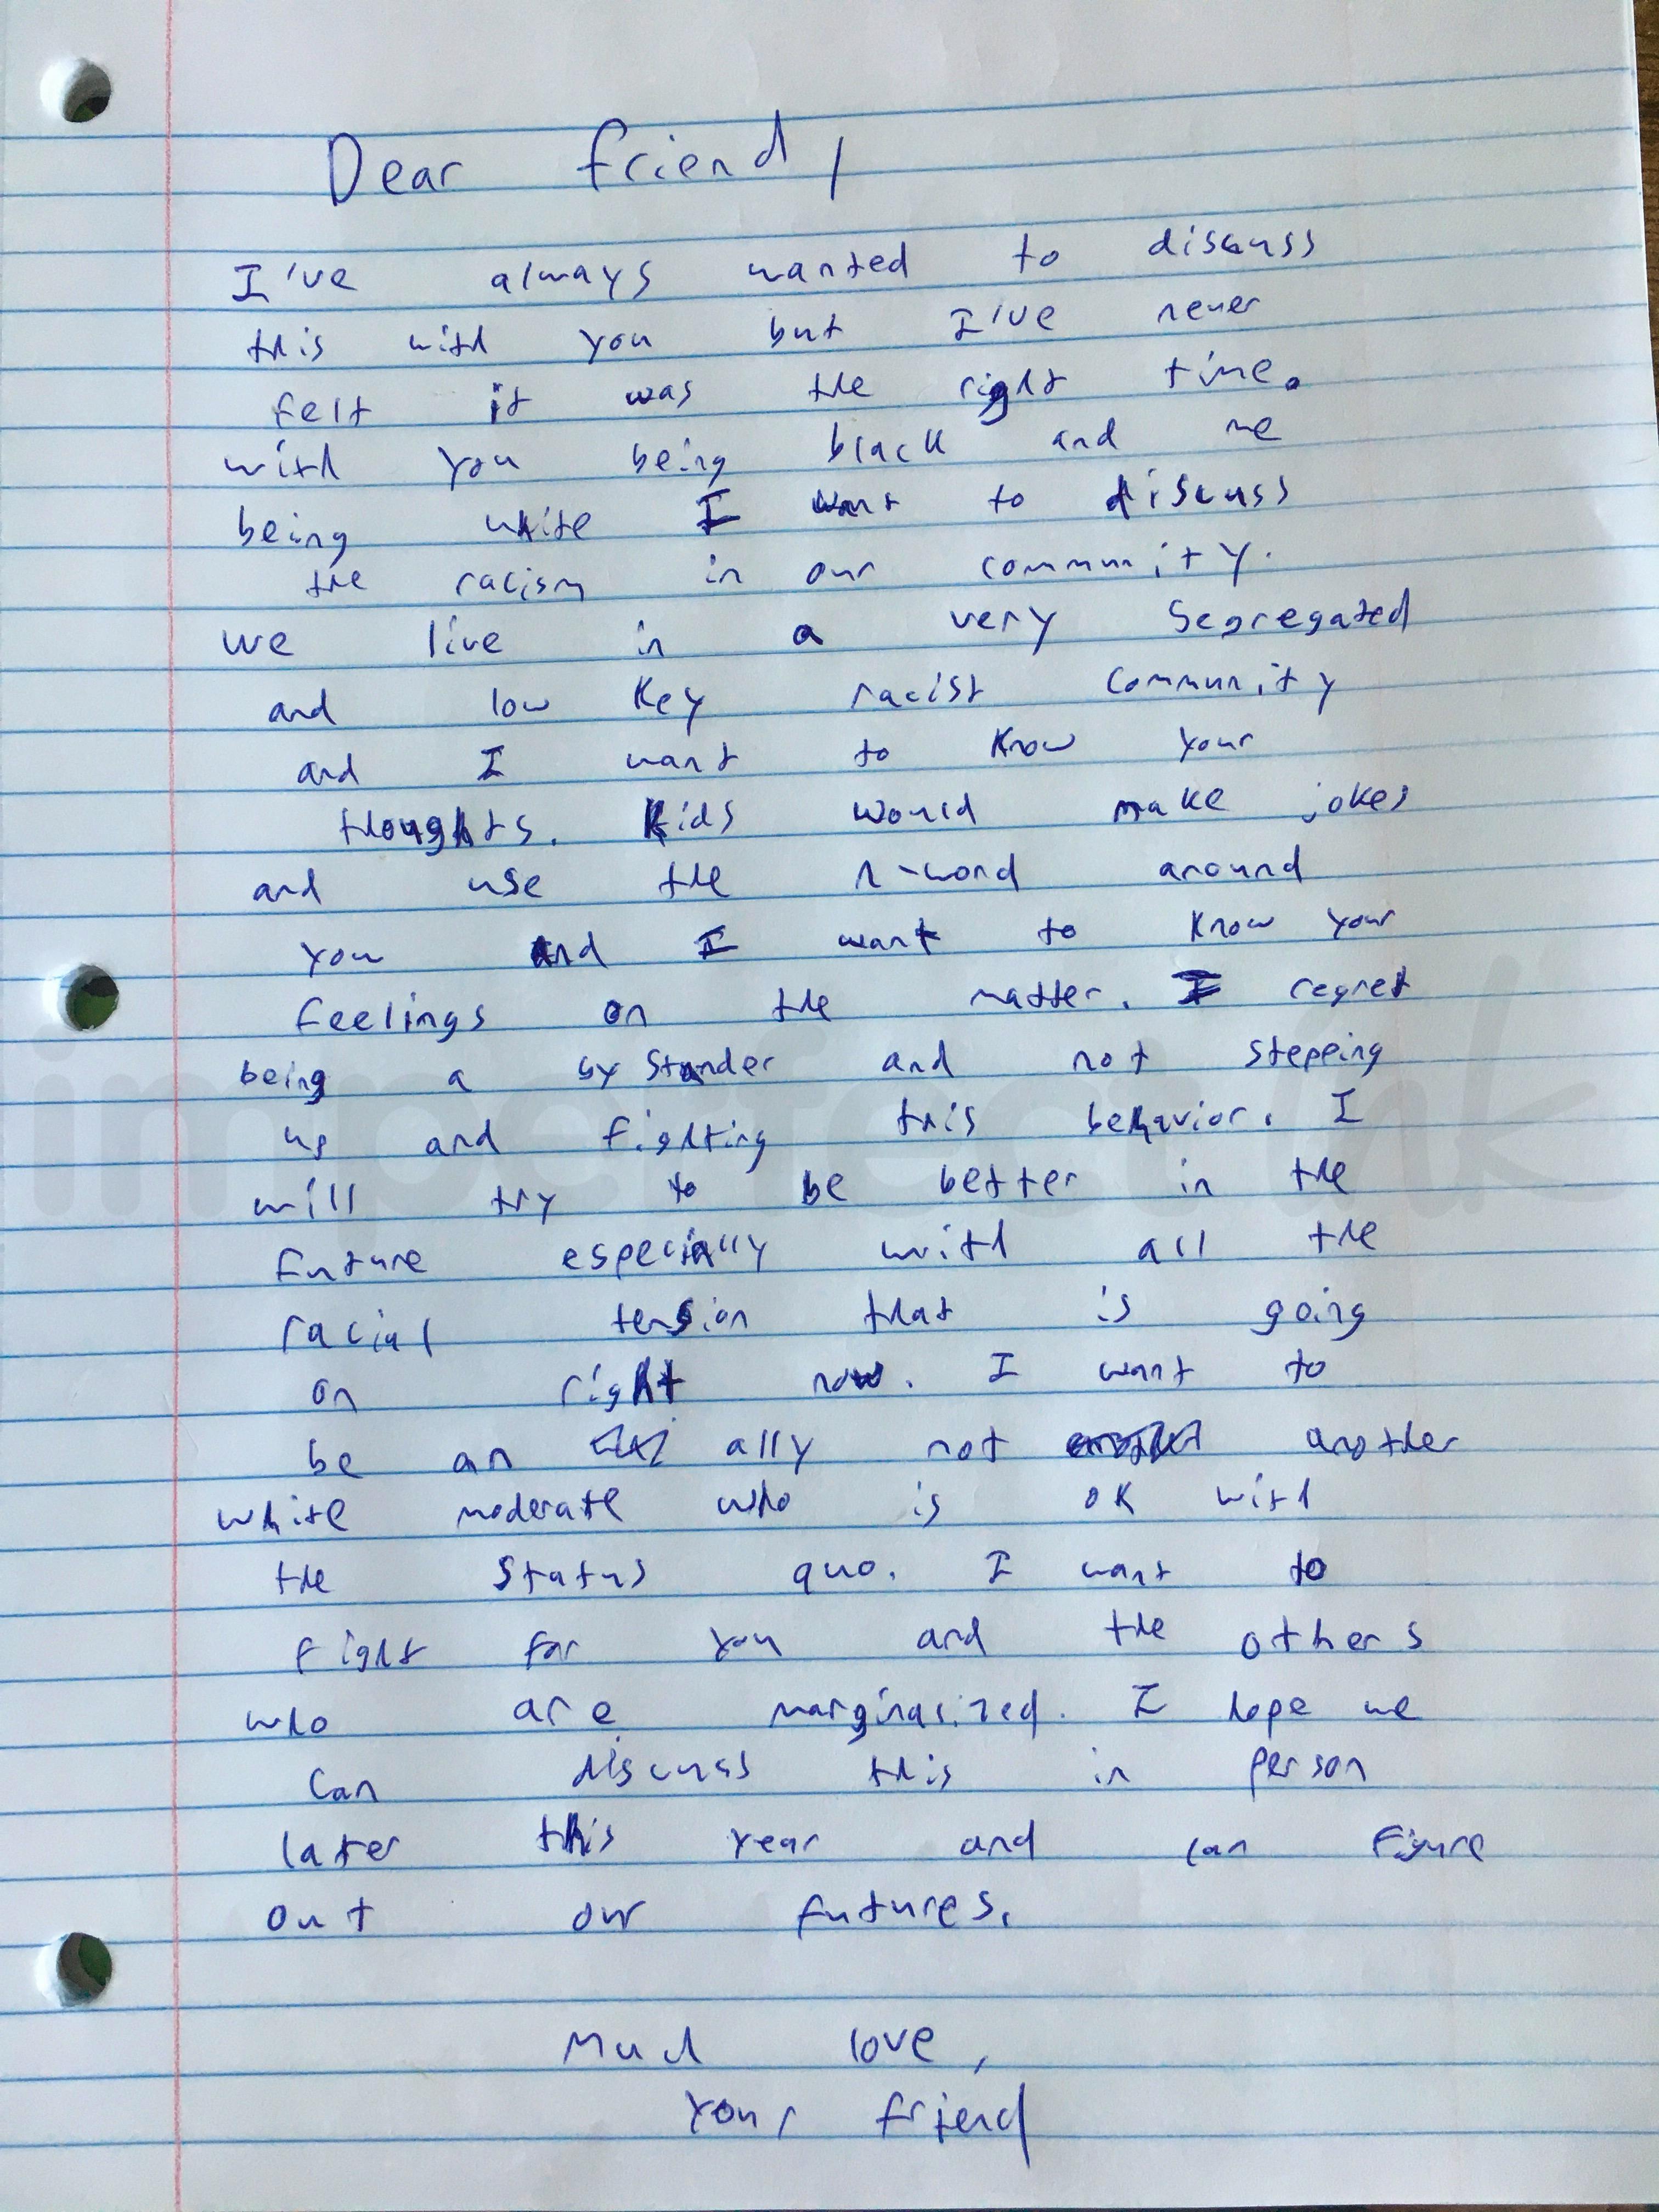 Dear friend,
I've always wanted to discuss
this with you but I've never
felt it was the right time.
with you being black and me
being white I want to discuss
the racism in our community.
we live in a very segregated
and low key racist community
and I want to know your
thoughts. Kids would make jokes
and use the n-word around
you and I want to know your
feelings on the matter. I regret
being a bystander and not stepping
up and fighting this behavior. I
will try to be better in the
future especially with all the
racial tension that is going
on right now. I want to
be an ally not another
white moderate who is ok with
the status quo. I want to
fight for you and the others
who are marginasized. I hope we
can discuss this in person
later this year and can figure
out our futures.
Much love,
Your friend
imperfect ink